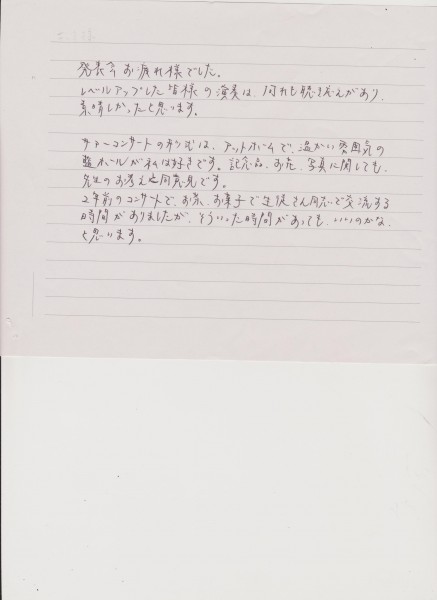 発表会お疲れ様でした。
レベルアップした皆様の演奏は、何れも聴き応えがあり、
素晴しかったと思います。
サマーコンサートの は、アットホームで、温かい雰囲気の
ホールが私は好きです。記念品、お花、写真に関しても、
先生のお考えと同意見です。
2年前のコンサートで、お茶、お菓子で生徒さん同志で交流する
時間がありましたが、そういった時間があっても、いいのかな
と思います。